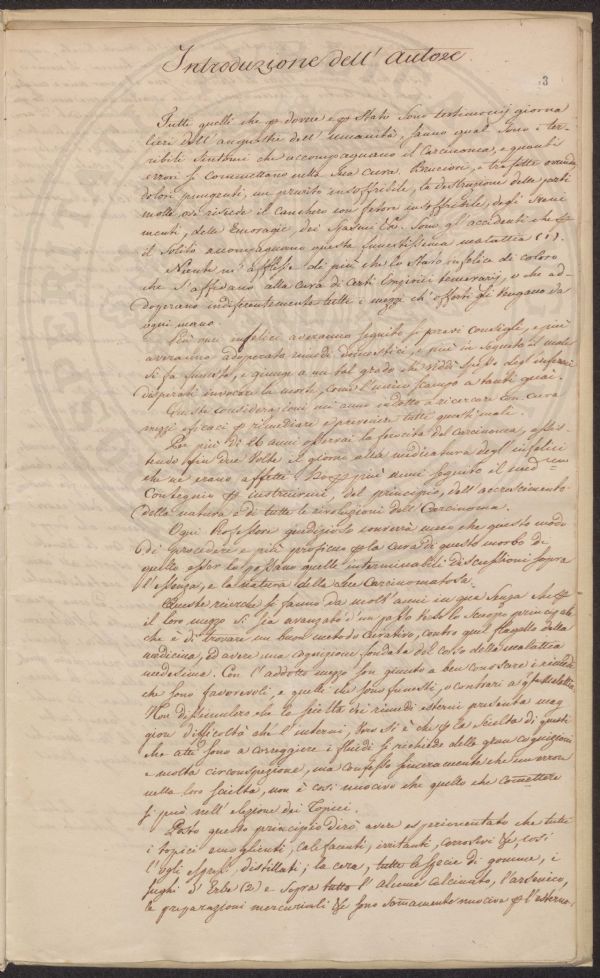 Introduzione dell' autore
3
Tutti quelli che p dovere e p Stato Sono testimonij giorna
lieri dell' angustie dell' umanità, sanno quai Sono i ter-
ribili Sintomi che accompagnano il Carcinoma, e quanti
errori si commettano nella sua cura. Bruciori, e trafitte orrende,
dolori pungenti, un prurito insoffribile, la distruzione delle parti
molle ove risiede il Canchero con fetore insoffribile, degli Sveni
menti, delle Emoragie dei Spasmi &c. Sono gl' accidenti che p
il Solito accompagnano questa funestissima malattia (1).
Niente m' afflisse di più che lo Stato infelice di coloro
che S' affidano alla cura di certi Empirici temerarij, o che ad-
doperano indifferentemente tutti i mezzi ch' offerti gli vengano da
ogni mano.
Più quei infelici averanno seguito si pravi consigli, e più
averanno adoperata rimedi domestici, e più in Seguito il male
si fà funesto, e giunge a un tal grado che viddi spesso degl' infermi
disperati invocare la morte, come l' unico scampo a tanti guai.
Queste considerazioni mi anno indotto a ricercare con cura
mezzi efficaci p rimediare e prevenire tutti questi mali.
Per più di 26 anni osservai la ferocità del Carcinoma, assis-
tendo ogni due Volte il giorno alla medicatura degl' infelici
che ne erano affetti. più anni Seguito il med
Conseguio p instruirmi, del principio, dell' accrescimento
della natura e di tutte le rivoluzioni dell' Carcinoma.
Ogni Professore giudizioso converrà meco che questo modo
di procedere e più proficuo p la cura di questo morbo di
quello esser lo possano quelle interminabili discussioni sopra
l' essenza, e la natura della Carcinomatosa.
Queste ricerche si fanno da molt' anni in qua Senza che p
il loro mezzo si sia avanzato d' un passo verso lo Scuopo principale
che è di trovare un buon metodo curativo, contro quel flagello della
medicina, ed avere una cognizione fondata del corso della malattia
medesima. Con l' addotto mezzo son giunto a ben conoscere i rimedi
che sono favorevoli, e quelli che sono funesti, o contrari a qta Malattia
Non dissimulerò che la scielta dei rimedi esterni presenta mag
giori difficoltà che l' interni, Vero Si è che p la Scielta di questi
che atti Sono a correggiere i fluidi si richiede delle gran cognizioni
e molta circonspezione, ma confesso sinceramente che un errore
nella loro scielta, non è così nuocivo che quello che comettere
si può nell' elezione dei Topici.
Posto questo principio dirò avere esperimentato che tutti
i topici emoglienti, calefacenti, irritanti, corrosivi &c, così
l' ogli distillati; la cera, tutte le specie di gomme, i
sughi d' Erbe (2) e sopra tutto l' alume calcinato, l' arsenico,
le preparazioni mercuriali &c sono somamente nuocive p l' esterno.